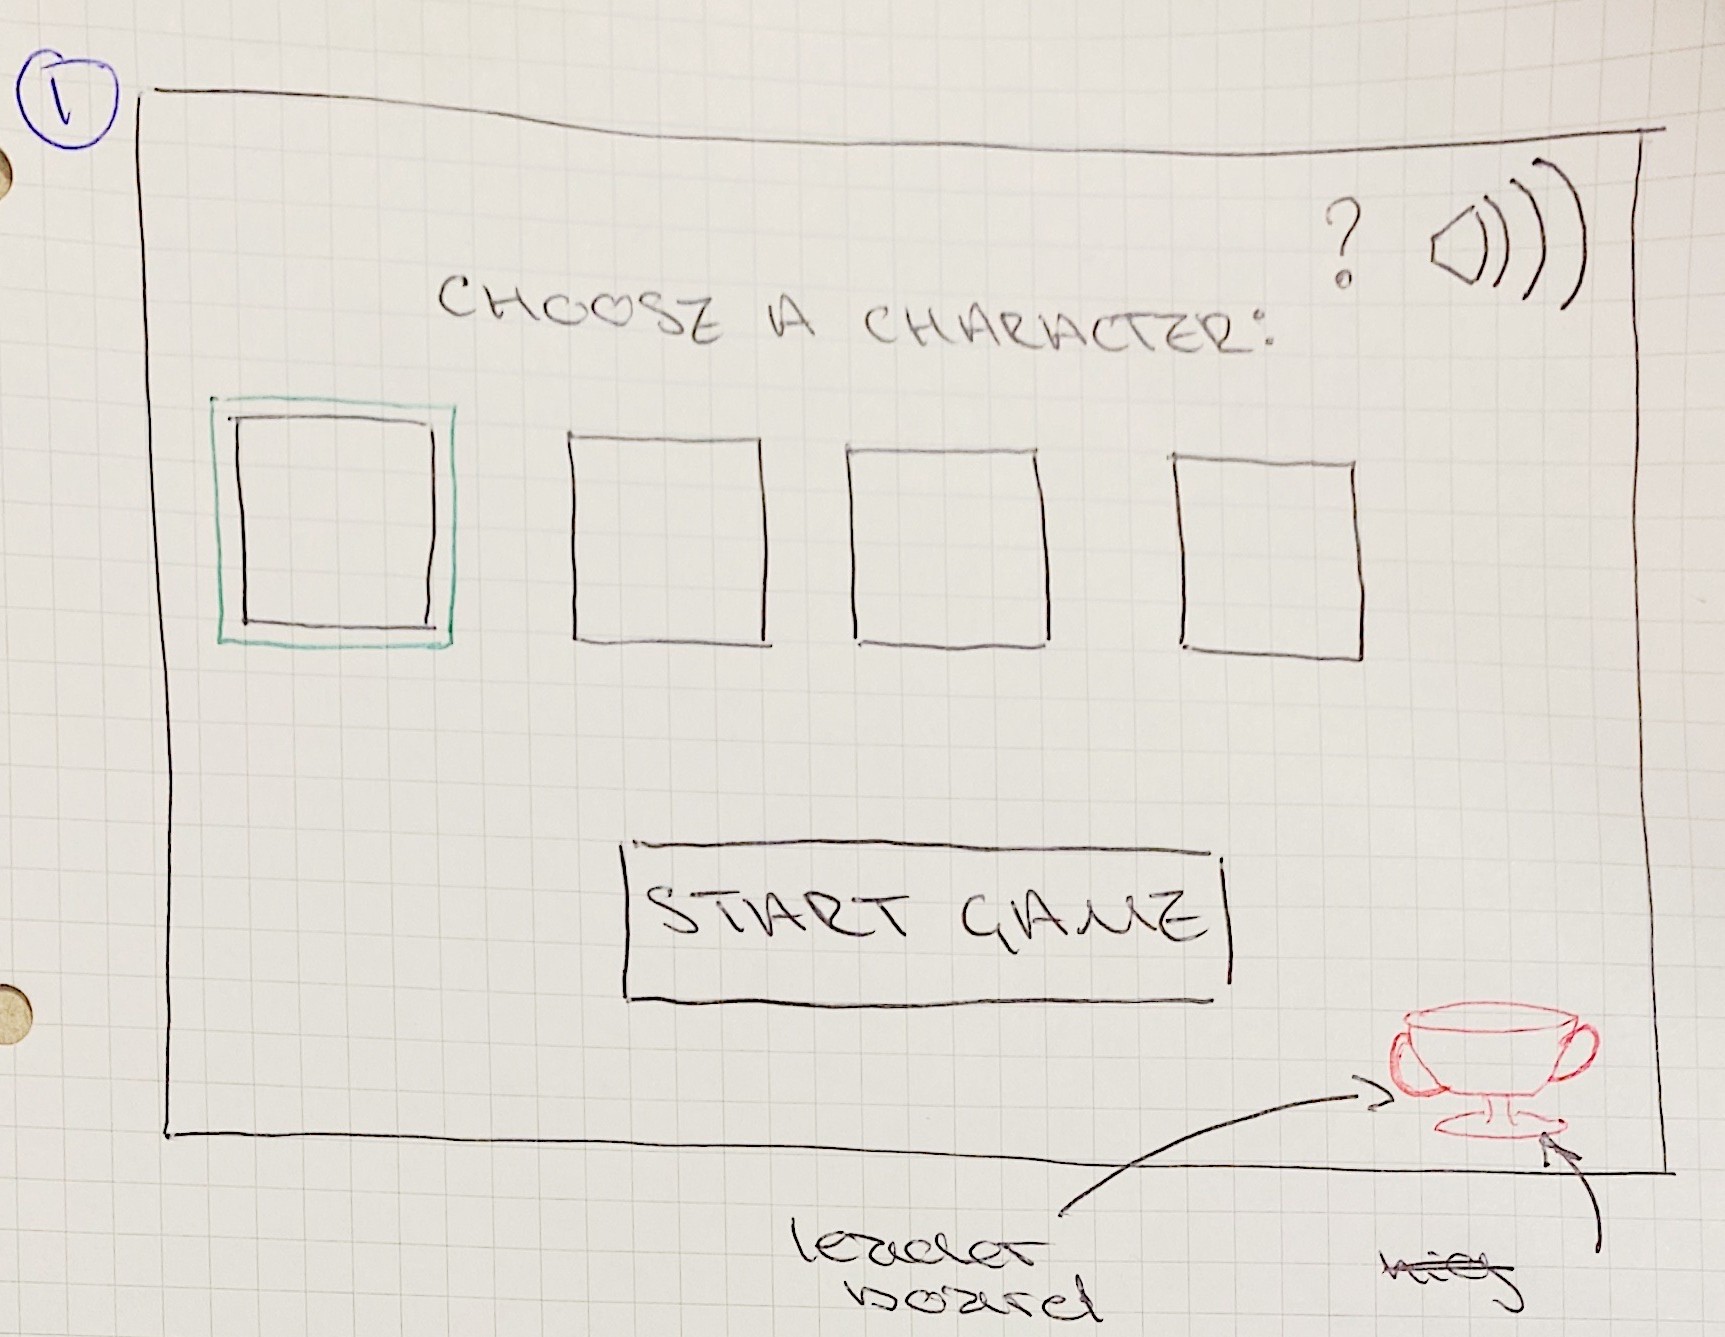 1
?
CHOOSE A CHARACTER:
START GAME
leader
board